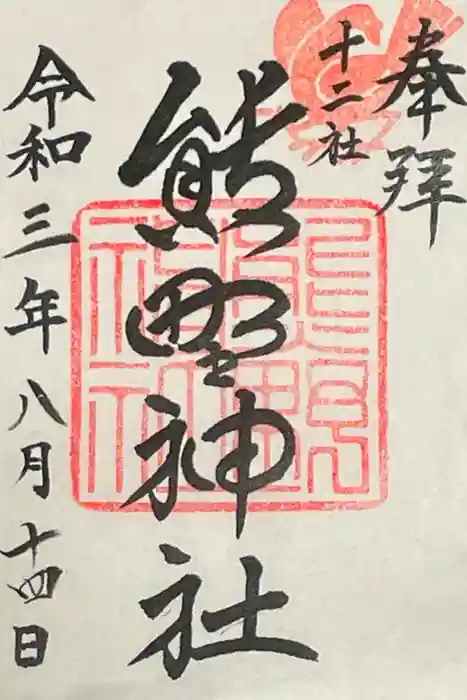 奉拝
十二社
熊野神社
令和三年八月十四日